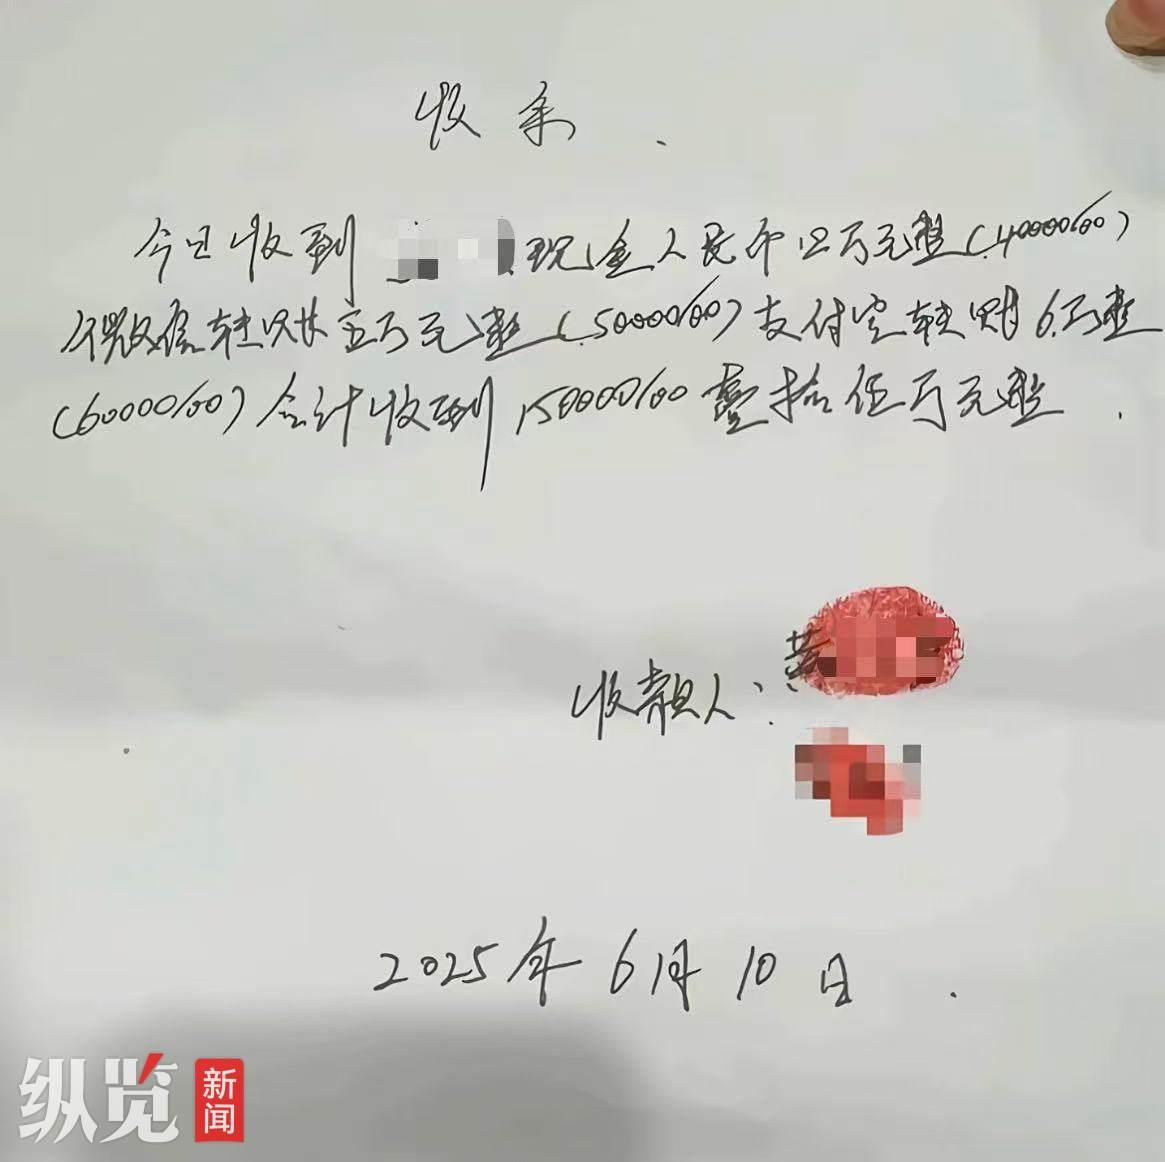 收条.
今日收到 现金人民币四万元整(40000/00)
微信转账五万元整(50000/00)支付宝转账6万整
(60000/00)合计收到150000/00壹拾伍万元整.
收款人: 黄
2025年6月10日.
纵览新闻